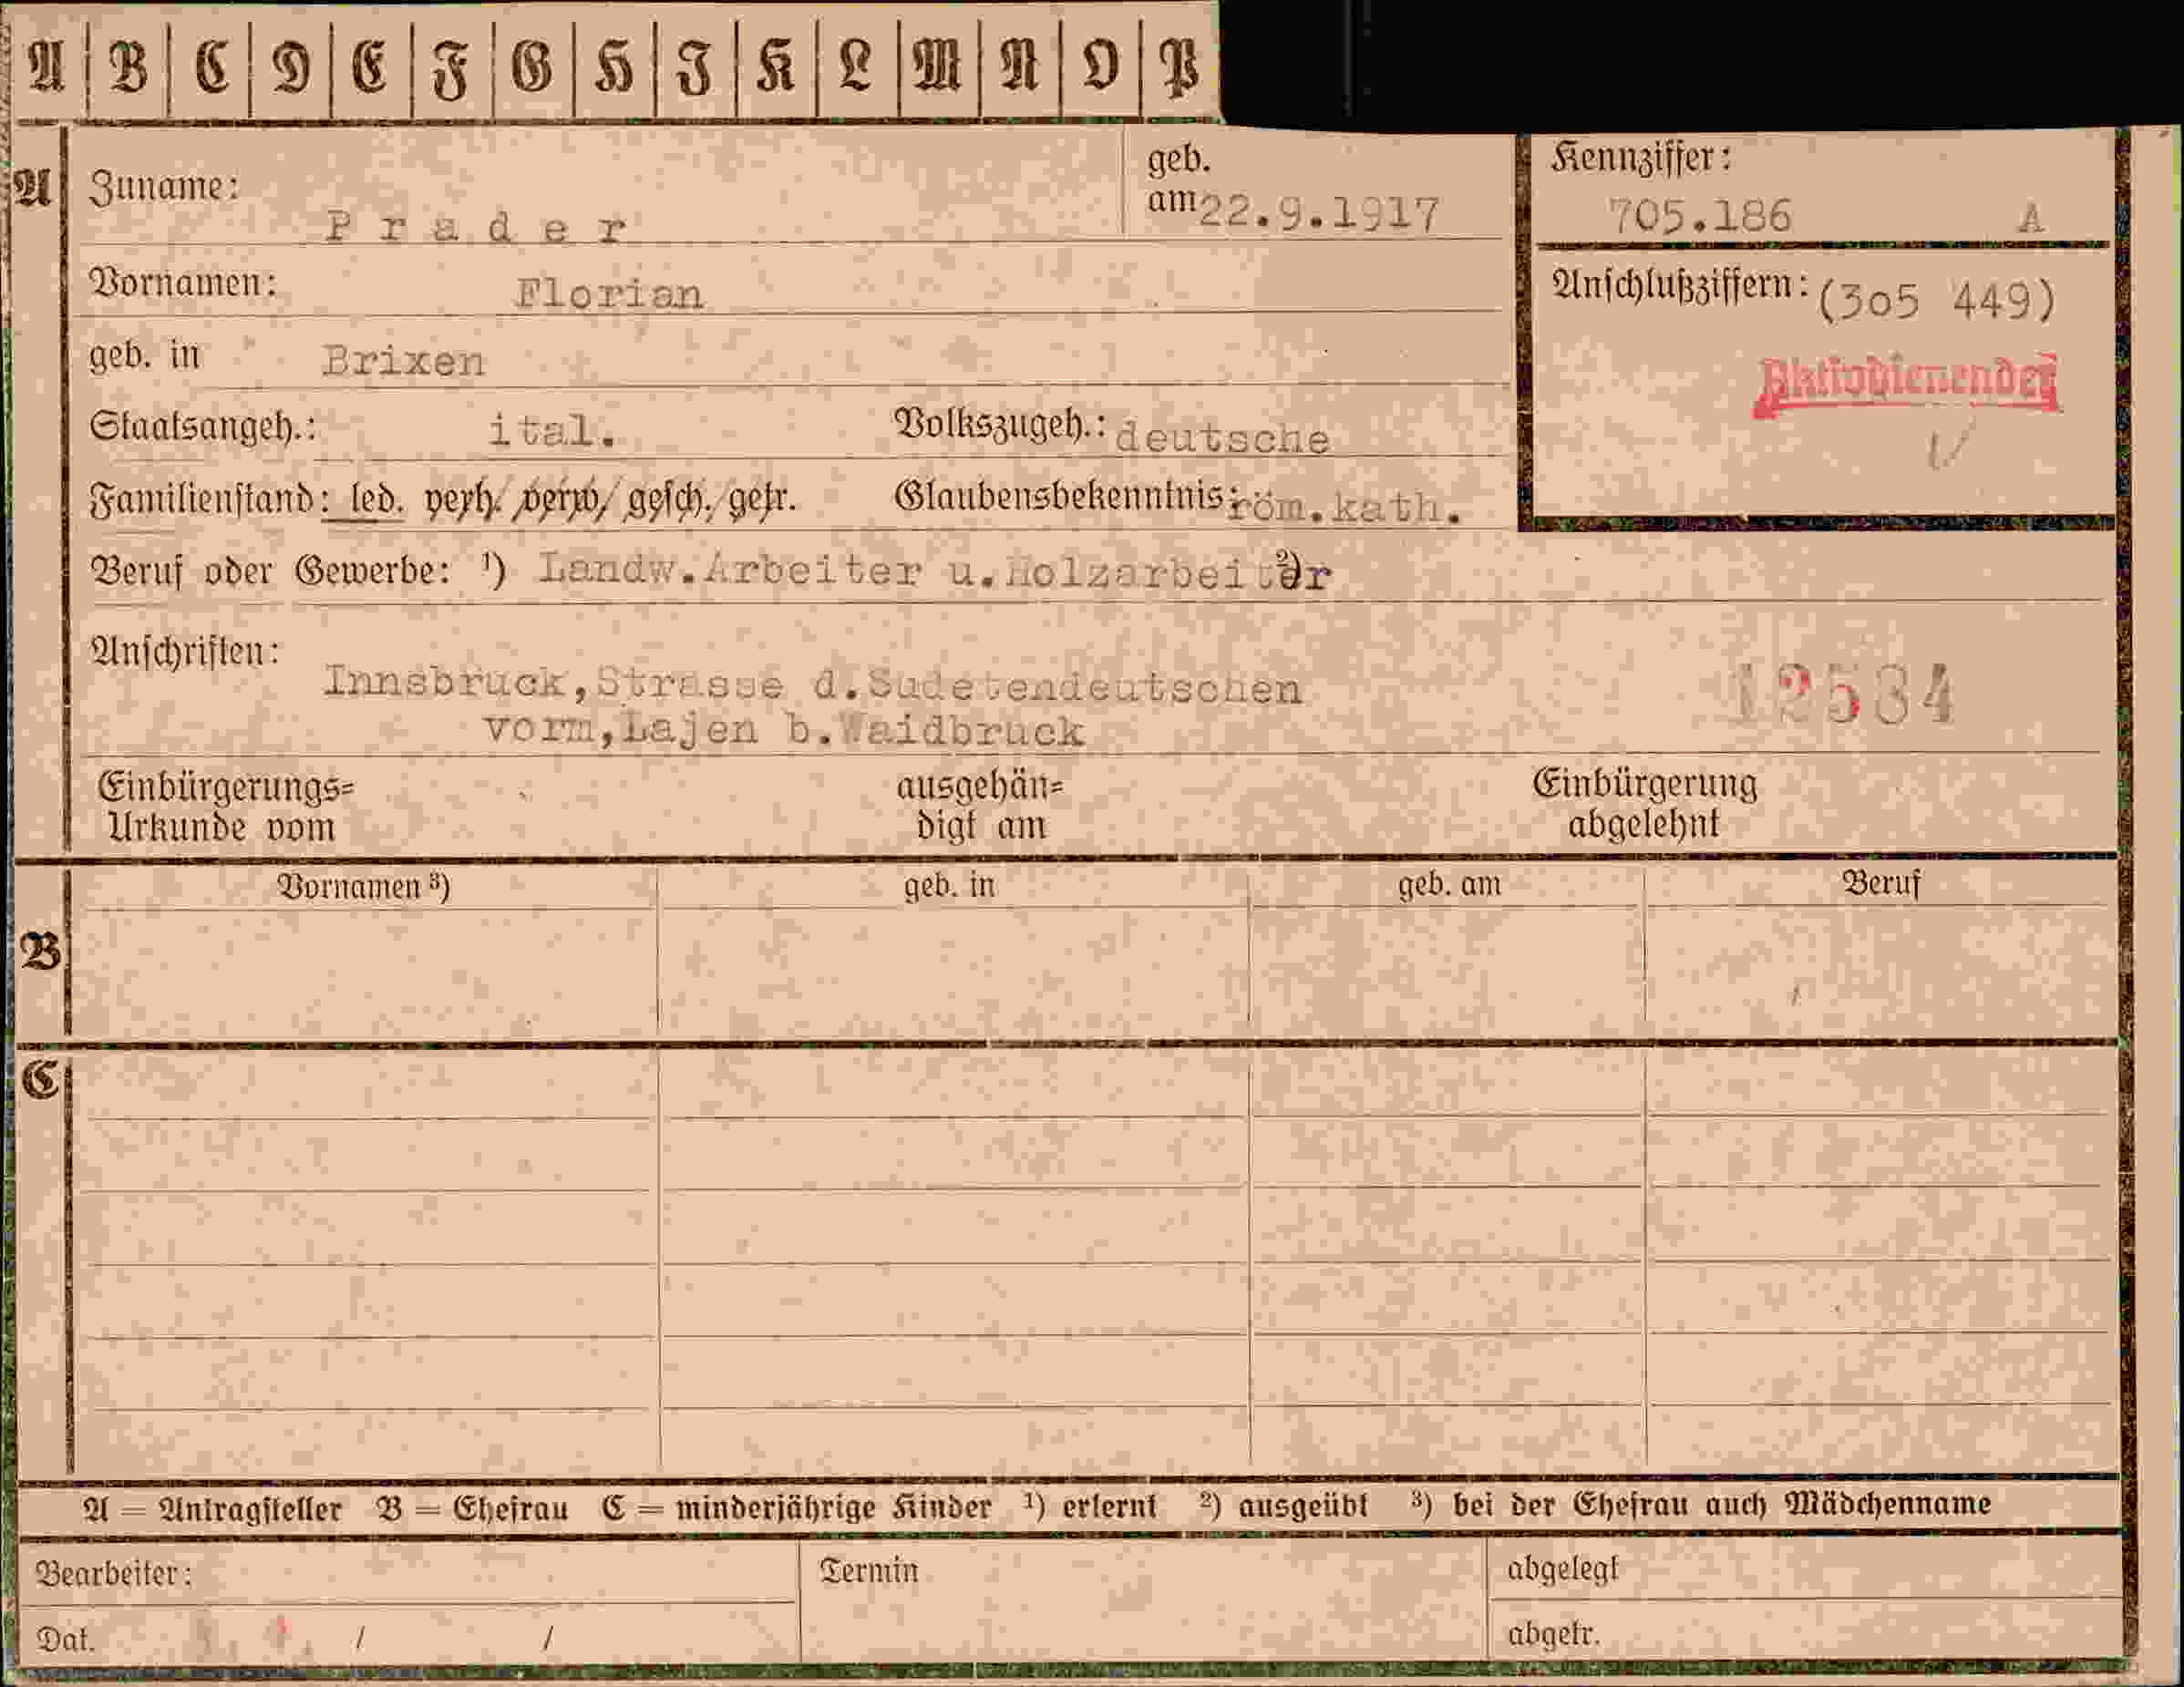 A B C D E F G H I K L M N O P
A Zuname: Prader geb. am 22.9.1917
Kennziffer: 705.186 A
Vornamen: Florian
Anschlußziffern: (305 449)
geb. in Brixen
Aktivdienender
Staatsangeh.: ital. Volkszugeh.: deutsche
Familienstand: led. verh. verw. gesch. getr. Glaubensbekenntnis: röm.kath.
Beruf oder Gewerbe: ¹) Landw.Arbeiter u.Holzarbeiter ²)
Anschriften:
Innsbruck,Strasse d.Sudetendeutschen
vorm,Lajen b.Waidbruck
12534
Einbürgerungs=
Urkunde vom
ausgehän=
digt am
Einbürgerung
abgelehnt
B Vornamen ³) geb. in geb. am Beruf
C
A = Antragsteller B = Ehefrau C = minderjährige Kinder ¹) erlernt ²) ausgeübt ³) bei der Ehefrau auch Mädchenname
Bearbeiter: Termin abgelegt
Dat. / / abgetr.